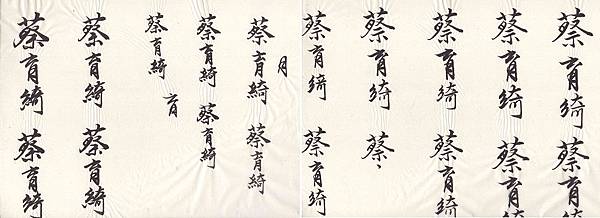 蔡育綺蔡育綺
蔡育綺蔡育綺
蔡育綺蔡育綺
蔡育綺蔡
蔡育綺蔡育綺
月
蔡育綺蔡育綺
蔡育綺蔡育綺
育
蔡育綺
蔡育綺蔡育綺
蔡育綺蔡育綺